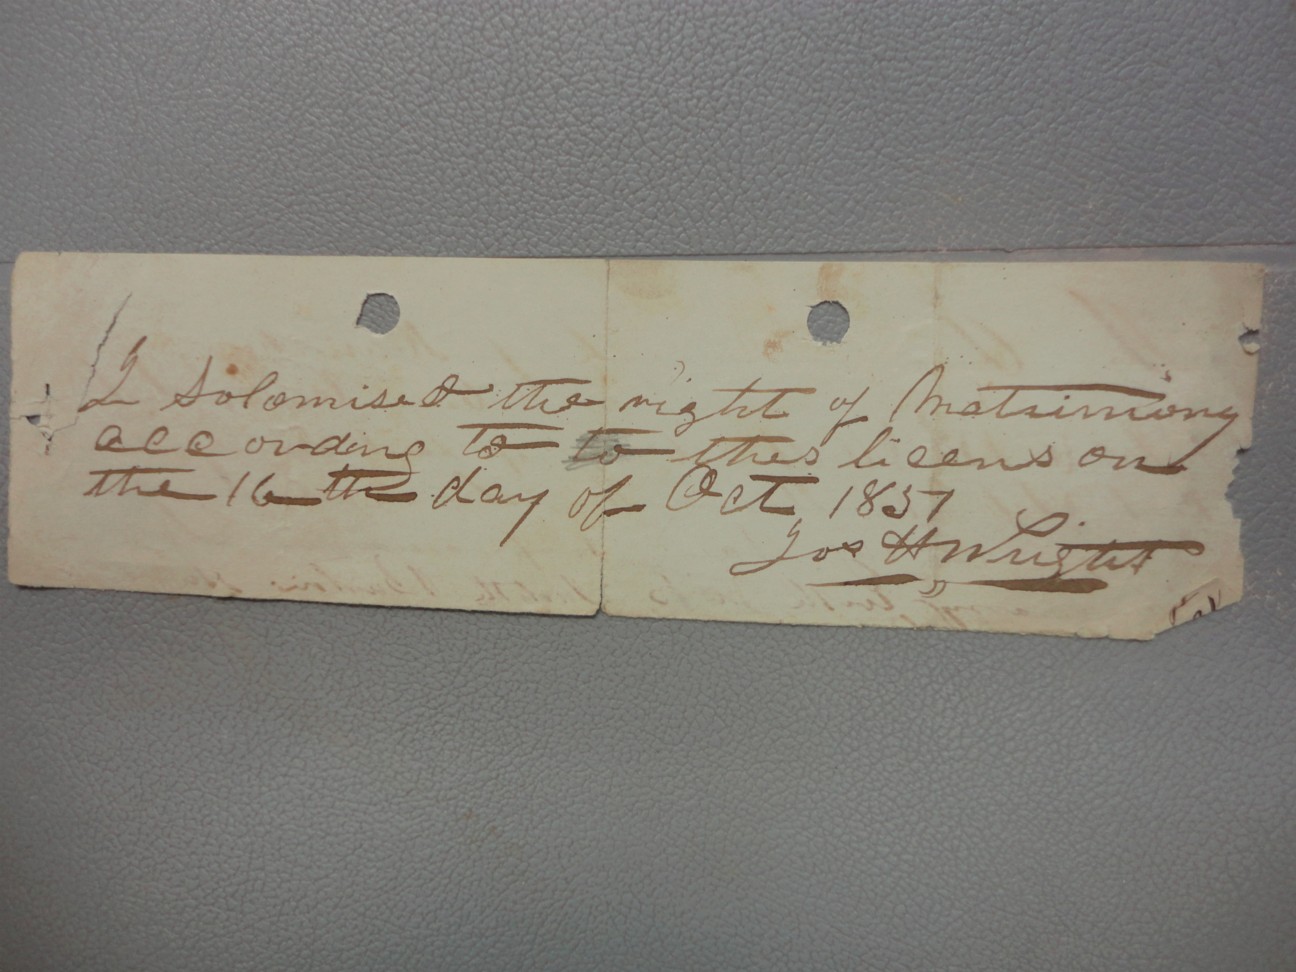 I Solomised the right of Matrimony
according to to thes licens on
the 16 th day of Oct 1857
Jos H Wright